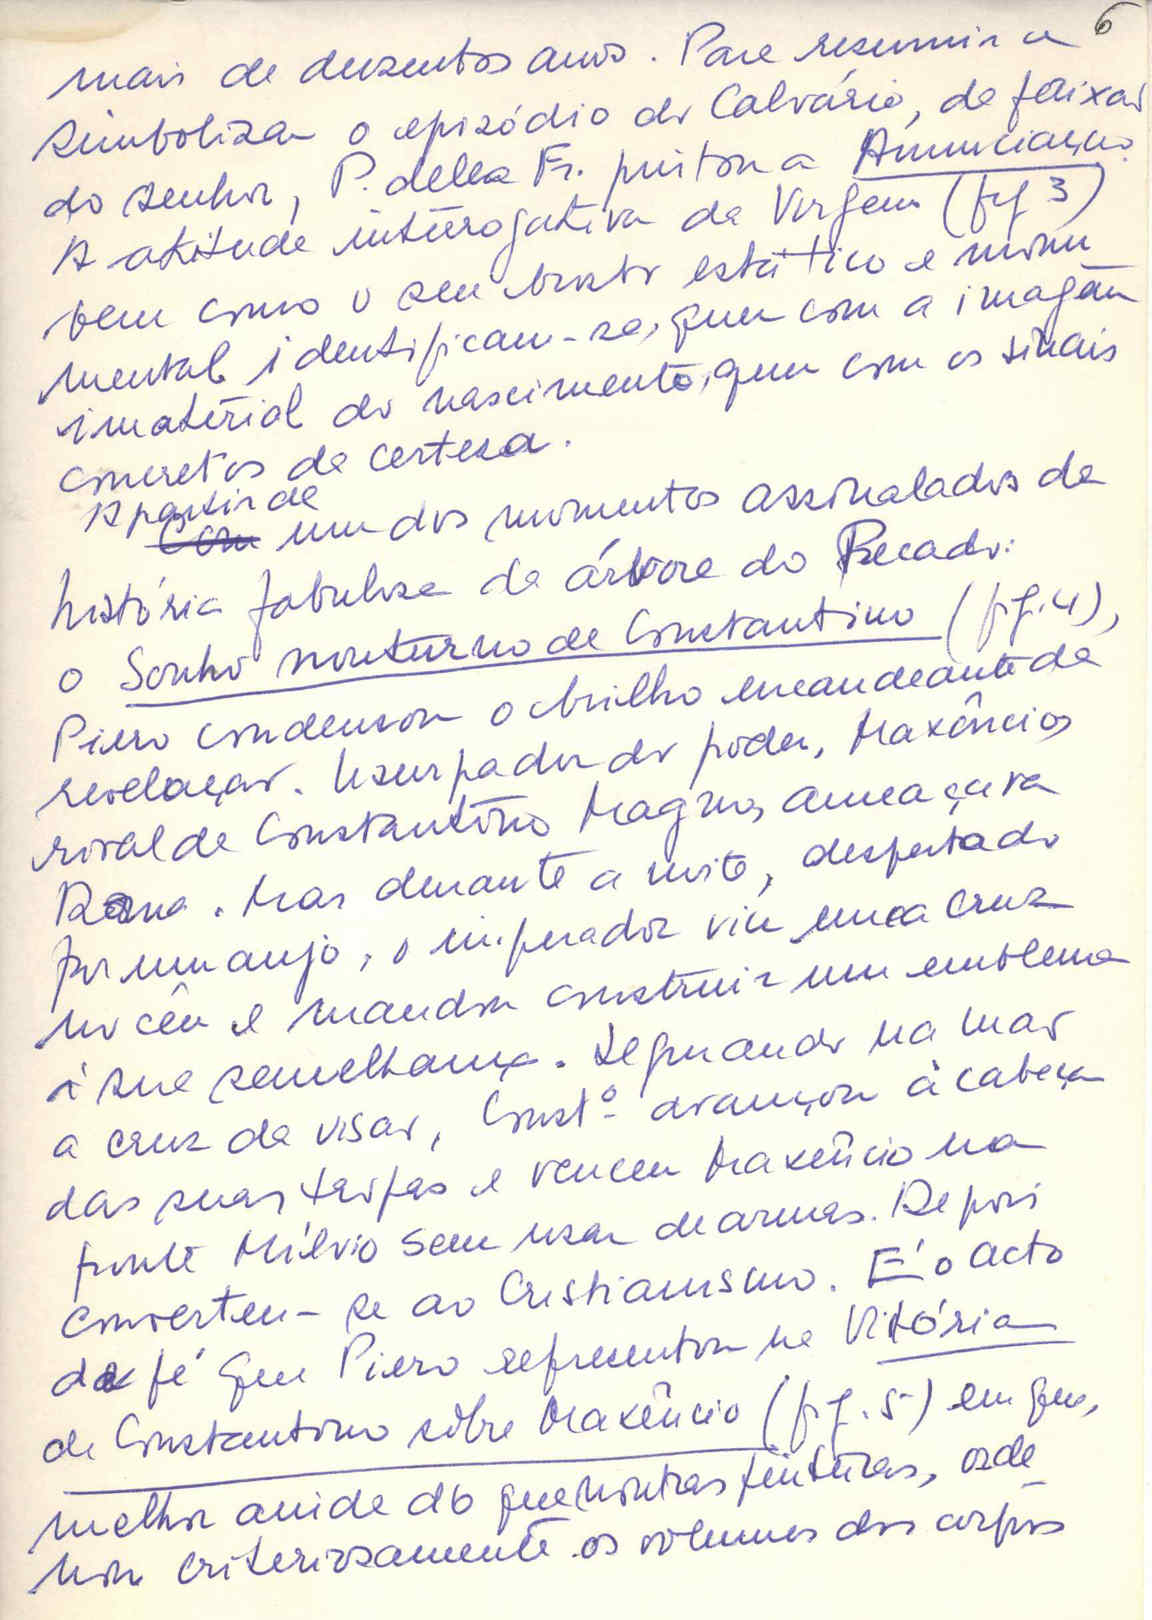 6
mais de duzentos anos. Para resumir e
simbolizar o episódio do Calvário, da paixão
do Senhor, P. della Fr. pintou a Anunciação.
A atitude interrogativa da Virgem (fig 3)
bem como o seu busto estático e monu
mental identificam-se, quer com a imagem
imaterial do nascimento, quer com os sinais
concretos da certeza.
A partir de
Com um dos momentos assinalados da
história fabulosa da árvore do Pecado:
o Sonho nocturno de Constantino (fig. 4),
Piero condensou o brilho encandeante da
revelação. Usurpador do poder, Maxêncio,
rival de Constantino Magno, ameaçava
Roma. Mas durante a noite, despertado
por um anjo, o imperador viu uma cruz
no céu e mandou construir um emblema
à sua semelhança. Segurando na mão
a cruz da visão, Constº avançou à cabeça
das suas tropas e venceu Maxêncio na
ponte Mílvio sem usar de armas. Depois
converteu-se ao Cristianismo. É o acto
da fé que Piero representou na Vitória
de Constantino sôbre Maxêncio (fig. 5) em que,
melhor ainda do que noutras pinturas, orde
nou criteriosamente os volumes dos corpos